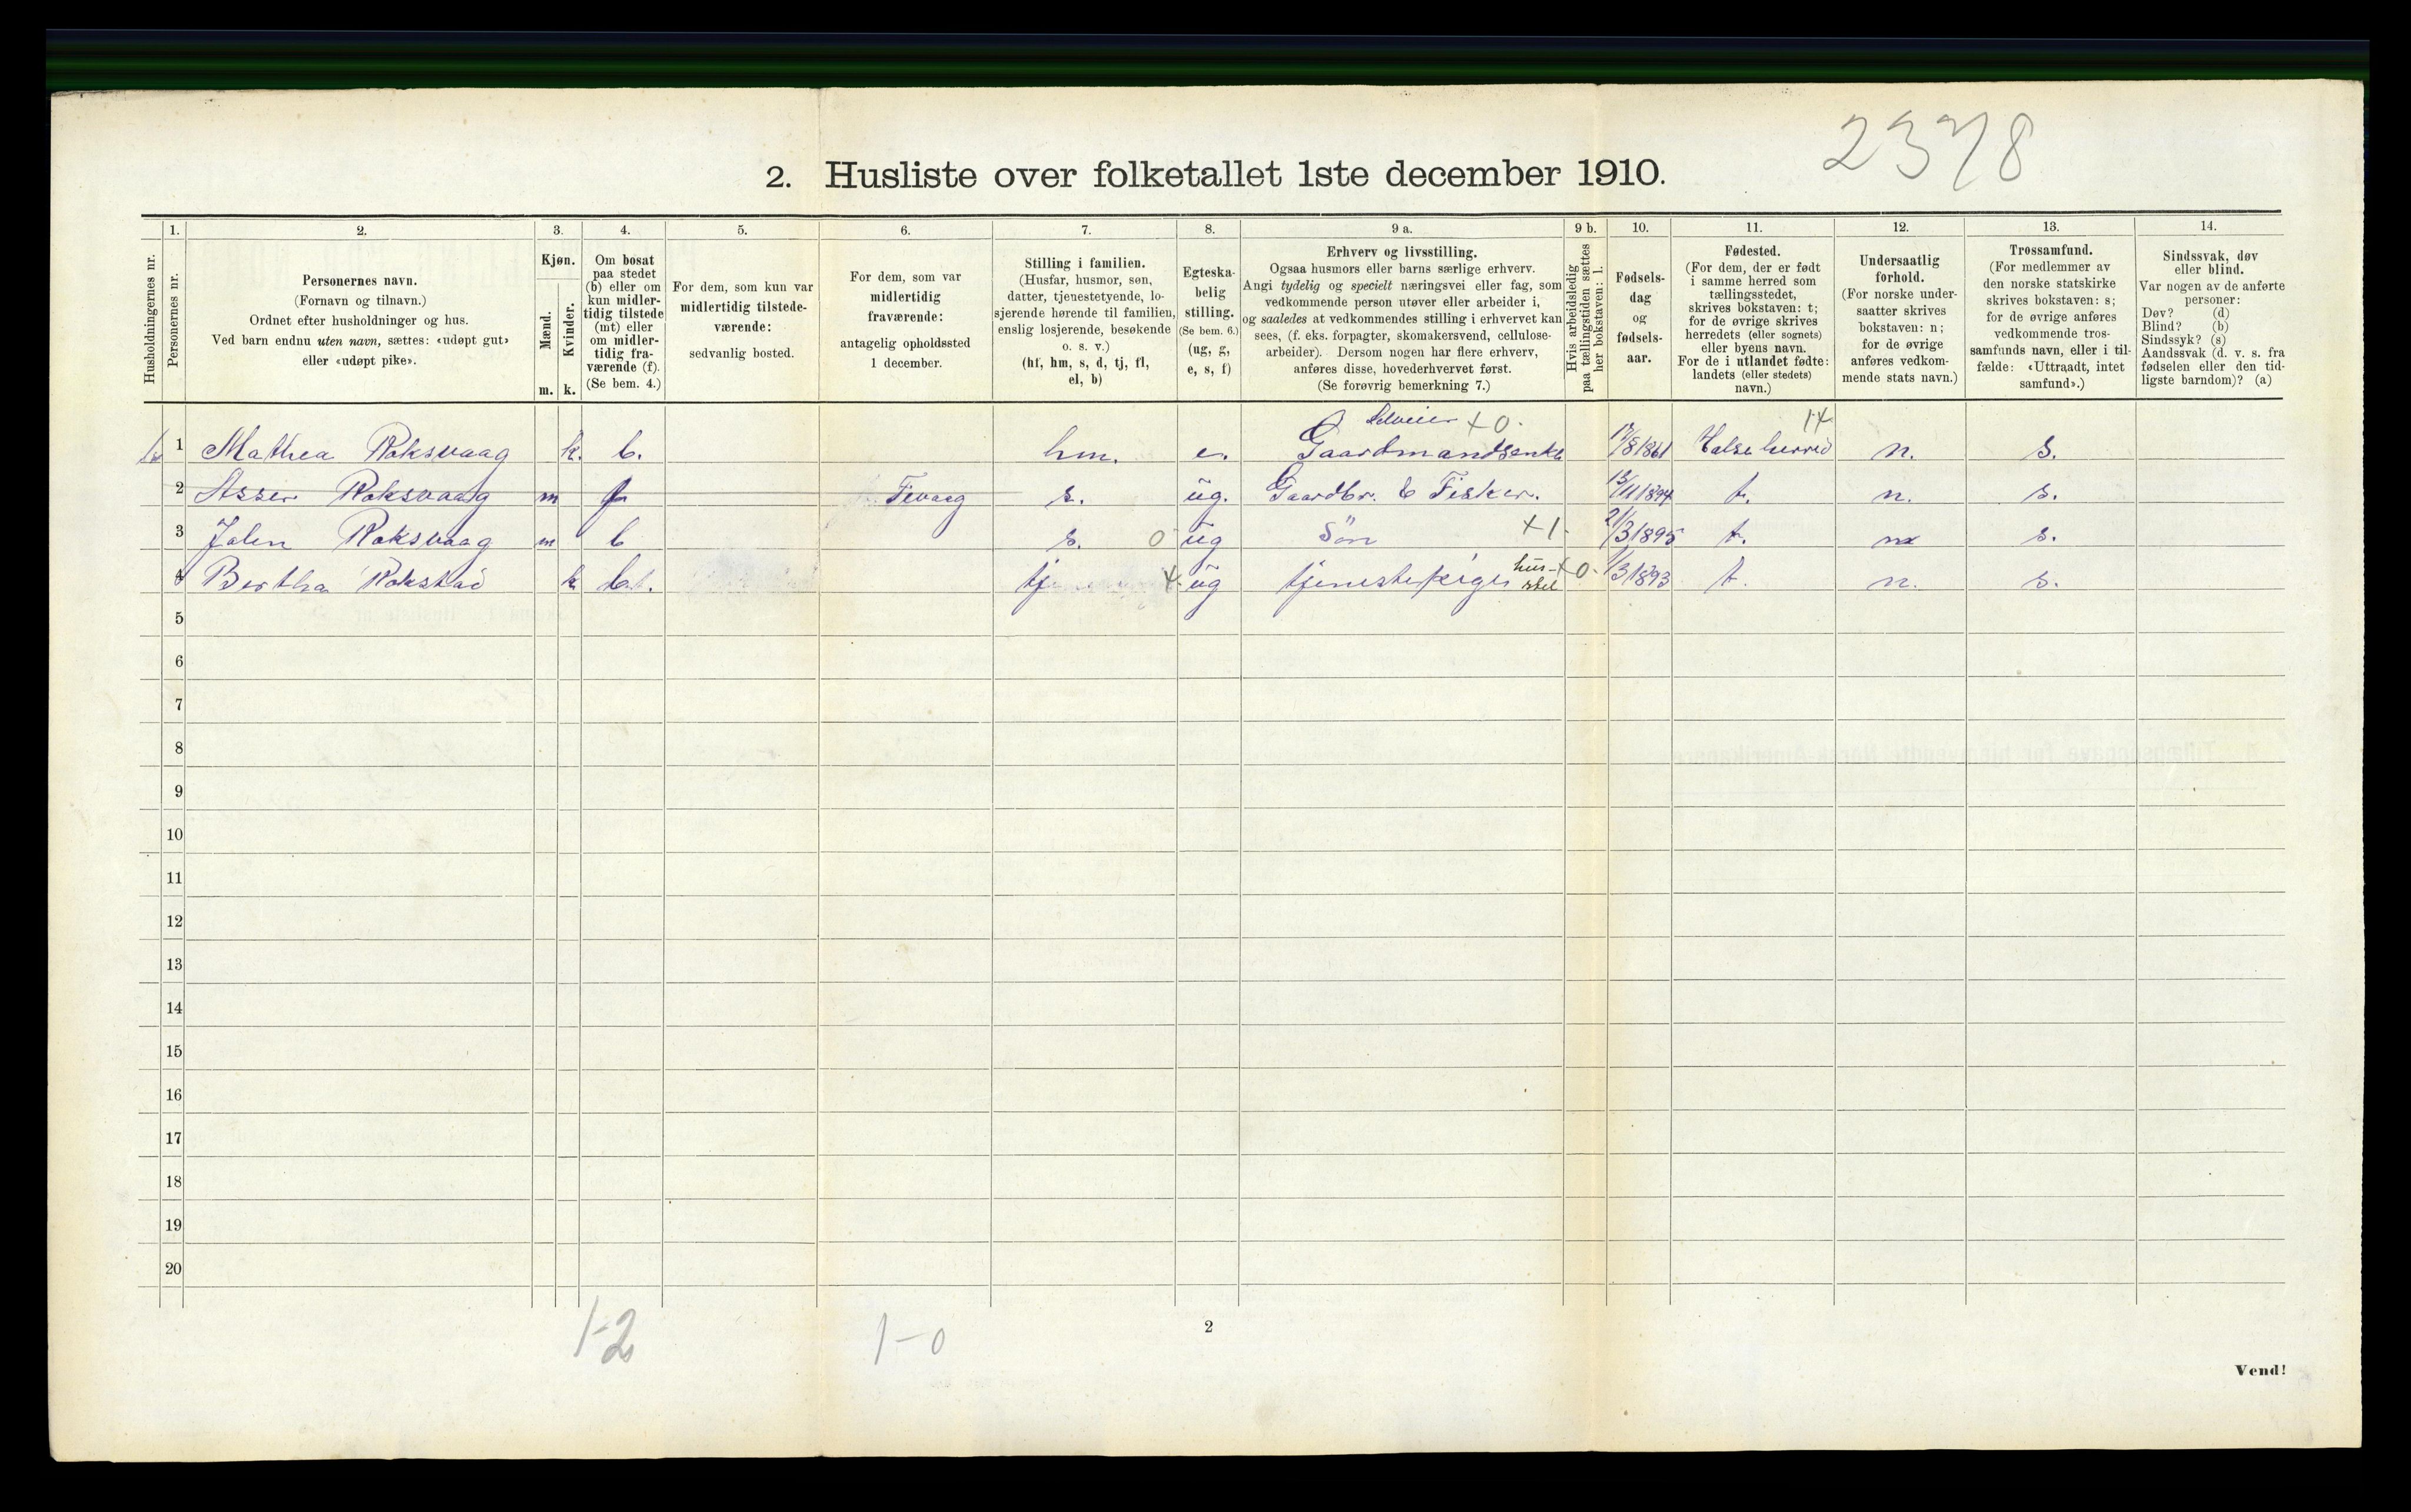 2378
2. Husliste over folketallet 1ste december 1910.
Husholdningernes nr.
1.
Personernes nr.
2.
Personernes navn.
(Fornavn og tilnavn.)
Ordnet efter husholdninger og hus.
Ved barn endnu uten navn, sættes: «udøpt gut»
eller «udøpt pike».
3.
Kjøn.
Mænd.
Kvinder.
m. k.
4.
Om bosat
paa stedet
(b) eller om
kun midler-
tidig tilstede
(mt) eller
om midler-
tidig fra-
værende (f).
(Se bem. 4.)
5.
For dem, som kun var
midlertidig tilstede-
værende:
sedvanlig bosted.
6.
For dem, som var
midlertidig
fraværende:
antagelig opholdssted
1 december.
7.
Stilling i familien.
(Husfar, husmor, søn,
datter, tjenestetyende, lo-
sjerende hørende til familien,
enslig losjerende, besøkende
o. s. v.)
(hf, hm, s, d, tj, fl,
el, b)
8.
Egteska-
belig
stilling.
(Se bem. 6.)
(ug, g,
e, s, f)
9 a.
Erhverv og livsstilling.
Ogsaa husmors eller barns særlige erhverv.
Angi tydelig og specielt næringsvei eller fag, som
vedkommende person utøver eller arbeider i,
og saaledes at vedkommendes stilling i erhvervet kan
sees, (f. eks. forpagter, skomakersvend, cellulose-
arbeider). Dersom nogen har flere erhverv,
anføres disse, hovederhvervet først.
(Se forøvrig bemerkning 7.)
9 b.
Hvis arbeidsledig
paa tællingstiden sættes
her bokstaven: l.
10.
Fødsels-
dag
og
fødsels-
aar.
11.
Fødested.
(For dem, der er født
i samme herred som
tællingsstedet,
skrives bokstaven: t;
for de øvrige skrives
herredets (eller sognets)
eller byens navn.
For de i utlandet fødte:
landets (eller stedets)
navn.)
12.
Undersaatlig
forhold.
(For norske under-
saatter skrives
bokstaven: n;
for de øvrige
anføres vedkom-
mende stats navn.)
13.
Trossamfund.
(For medlemmer av
den norske statskirke
skrives bokstaven: s;
for de øvrige anføres
vedkommende tros-
samfunds navn, eller i til-
fælde: «Uttraadt, intet
samfund».)
14.
Sindssvak, døv
eller blind.
Var nogen av de anførte
personer:
Døv? (d)
Blind? (b)
Sindssyk? (s)
Aandssvak (d. v. s. fra
fødselen eller den tid-
ligste barndom)? (a)
Selveier +0. 14
1 Mathea Roksvaag k. b. hm. e. Gaardmandsenke 17/8 1861 Halse herred n. s.
2 Asser Roksvaag m f Tevaag s. ug. Gaardbr. & Fisker. 13/11 1894 t. n. s.
3 Johen Roksvaag m b s. 0 ug Søn +1 21/3 1895 t. n s.
4 Bertha Rokstad k b. tj ug tjenestepige hus- stel +0 1/3 1893 t. n. s.
5
6
7
8
9
10
11
12
13
14
15
16
17
18
19
20
1-2 1-0
2
Vend!